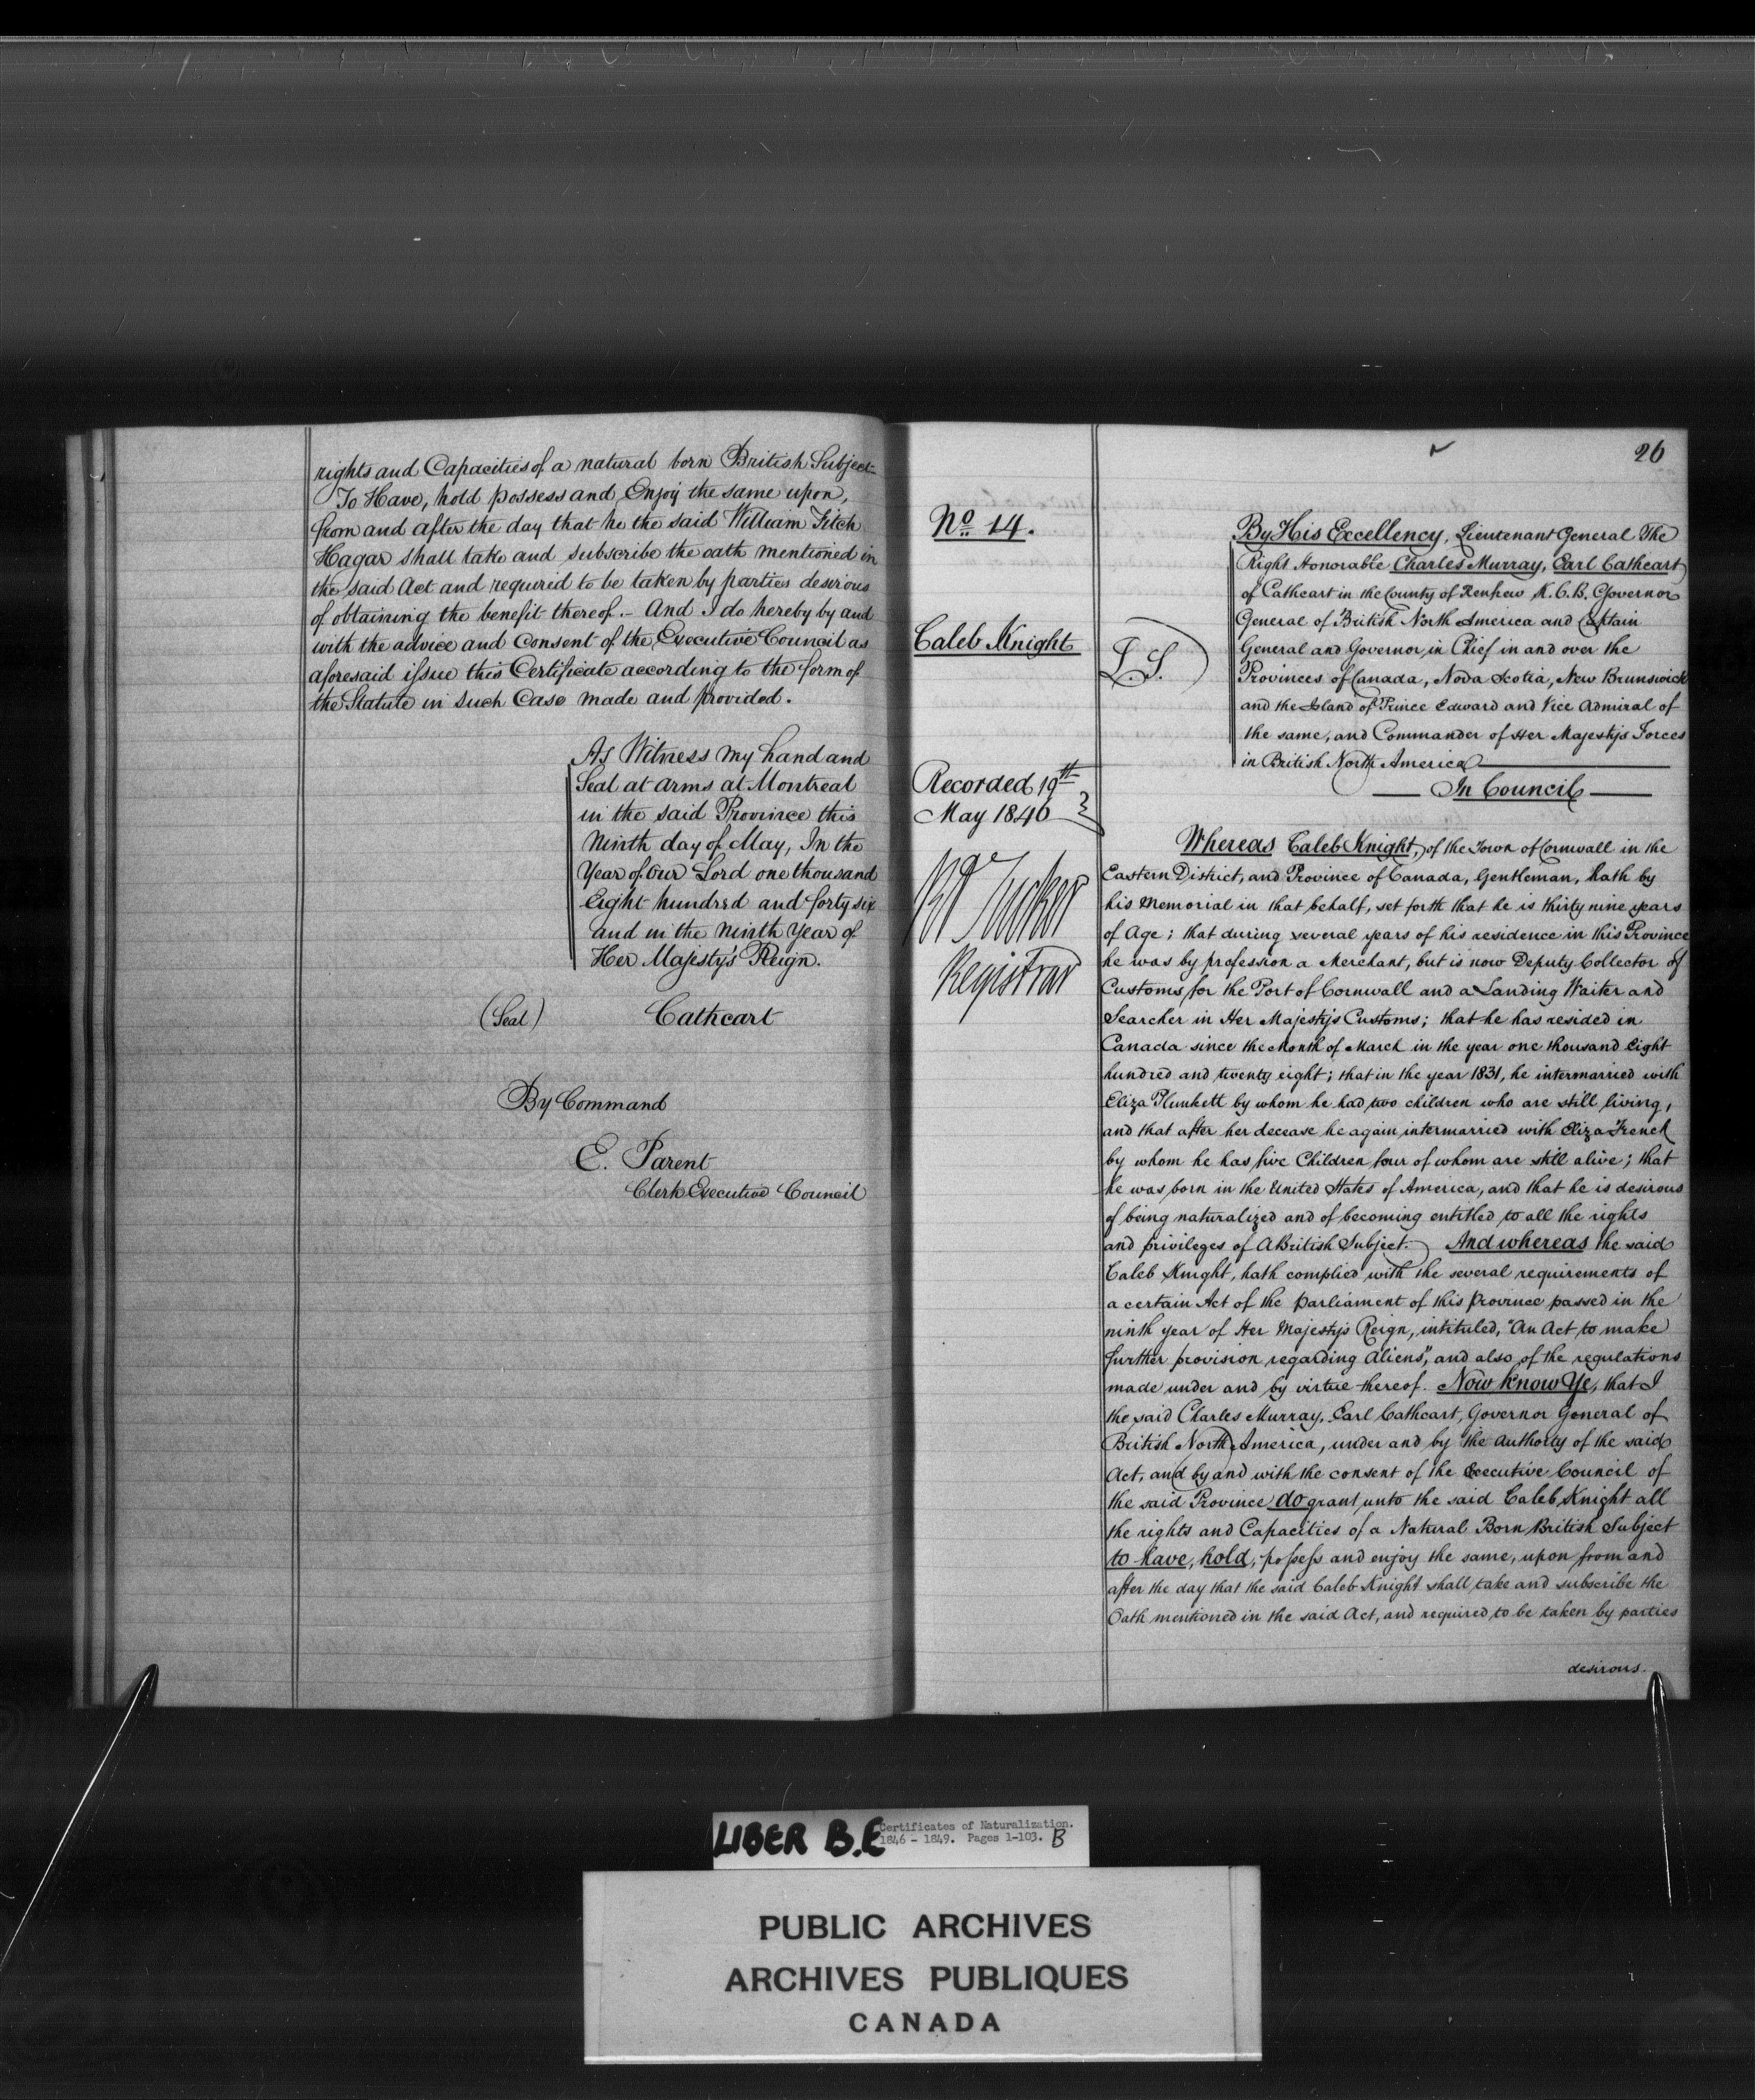 rights and Capacities of a natural born British Subject
To Have, hold possess and Enjoy the same upon,
from and after the day that he the said William Fitch
Hagar shall take and subscribe the oath mentioned in
the said Act and required to be taken by parties desirous
of obtaining the benefit thereof.- And I do hereby by and
with the advice and Consent of the Executive Council as
aforesaid issue this Certificate according to the form of
the Statute in such Case made and provided.
As Witness my hand and
Seal at arms at Montreal
in the said Province this
Ninth day of May, In the
Year of our Lord one thousand
Eight hundred and forty six
and in the ninth Year of
Her Majesty's Reign.
(Seal) Cathcart
By Command
E. Parent
Clerk Executive Council
26
No 14.
Caleb Knight
Recorded 19th
May 1846
Tucker
Registrar
L.S.
By His Excellency, Lieutenant General The
Right Honorable Charles Murray, Earl Cathcart
of Cathcart in the County of Renfrew K.C.B. Governor
General of British North America and Captain
General and Governor in Chief in and over the
Provinces of Canada, Nova Scotia, New Brunswick
and the Island of Prince Edward and Vice Admiral of
the same, and Commander of Her Majesty's Forces
in British North America
In Council
Whereas Caleb Knight, of the Town of Cornwall in the
Eastern District, and Province of Canada, Gentleman, hath by
his Memorial in that behalf, set forth that he is thirty nine years
of Age; that during several years of his residence in this Province
he was by profession a Merchant, but is now Deputy Collector of
Customs for the Port of Cornwall and a Landing Waiter and
Searcher in Her Majesty's Customs; that he has resided in
Canada since the Month of March in the year one thousand Eight
hundred and twenty eight; that in the year 1831, he intermarried with
Eliza Plunkett by whom he had two children who are still living,
and that after her decease he again intermarried with Eliza French
by whom he has five Children four of whom are still alive; that
he was born in the United States of America, and that he is desirous
of being naturalized and of becoming entitled to all the rights
and privileges of A British Subject. And whereas the said
Caleb Knight, hath complied with the several requirements of
a certain Act of the Parliament of this Province passed in the
ninth year of Her Majesty's Reign, intituled, "An Act to make
further provision regarding Aliens", and also of the regulations
made under and by virtue thereof. Now know Ye, that I
the said Charles Murray, Earl Cathcart, Governor General of
British North America, under and by the Authorty of the said
Act, and by and with the consent of the Executive Council of
the said Province do grant unto the said Caleb Knight all
the rights and Capacities of a Natural Born British Subject
to have, hold, possess and enjoy the same, upon from and
after the day that the said Caleb Knight shall take and subscribe the
Oath mentioned in the said Act, and required to be taken by parties
desirous.
LIBER B.E
Certificates of Naturalization.
1846 - 1849. Pages 1-103. B
PUBLIC ARCHIVES
ARCHIVES PUBLIQUES
CANADA